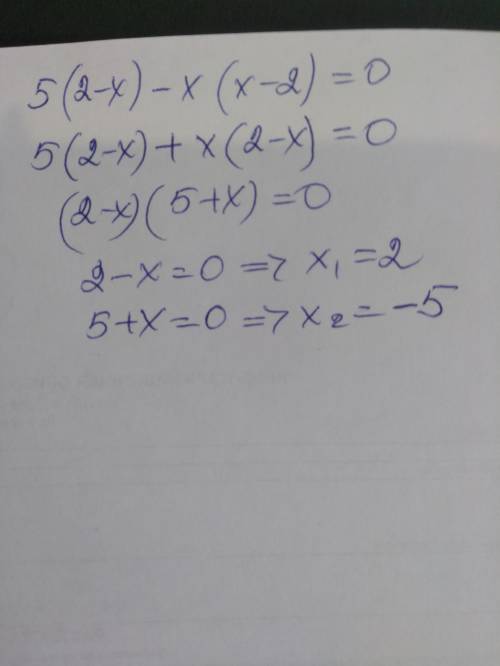 5(2-x)-x(x-2)=0
5(2-x)+x(2-x)=0
(2-x)(5+x)=0
2-x=0 => x₁=2
5+x=0 => x₂=-5